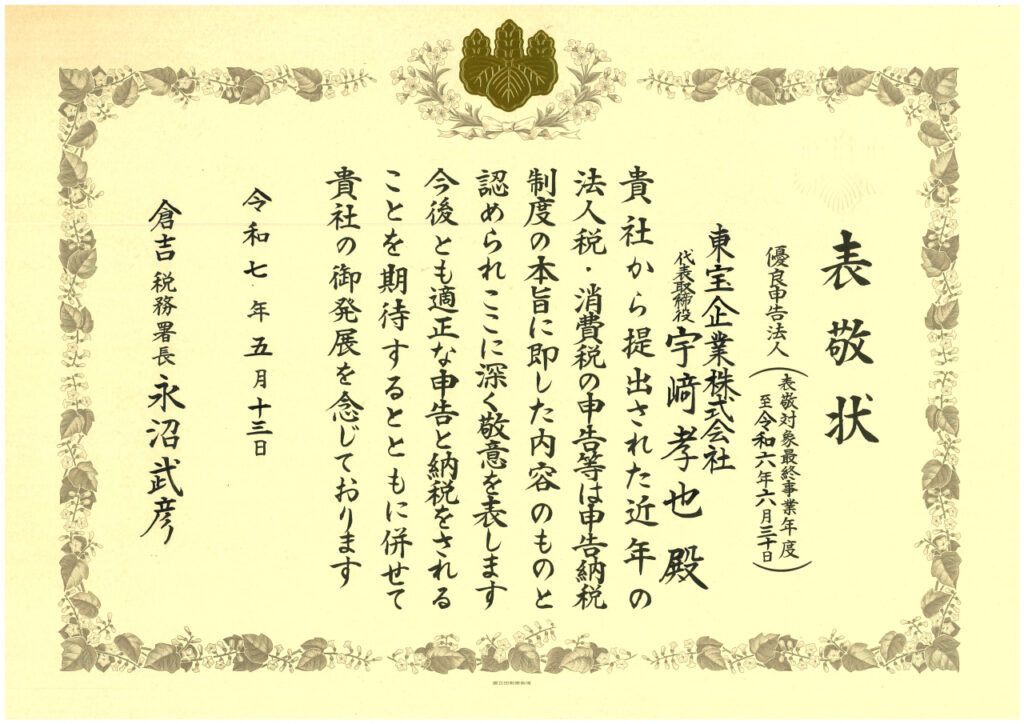 表敬状
優良申告法人
(表敬対象最終事業年度
至令和六年六月三十日)
東宝企業株式会社
代表取締役 宇﨑孝也 殿
貴社から提出された近年の
法人税・消費税の申告等は申告納税
制度の本旨に即した内容のものと
認められここに深く敬意を表します
今後とも適正な申告と納税をされる
ことを期待するとともに併せて
貴社の御発展を念じております
令和七年五月十三日
倉吉税務署長 永沼武彦